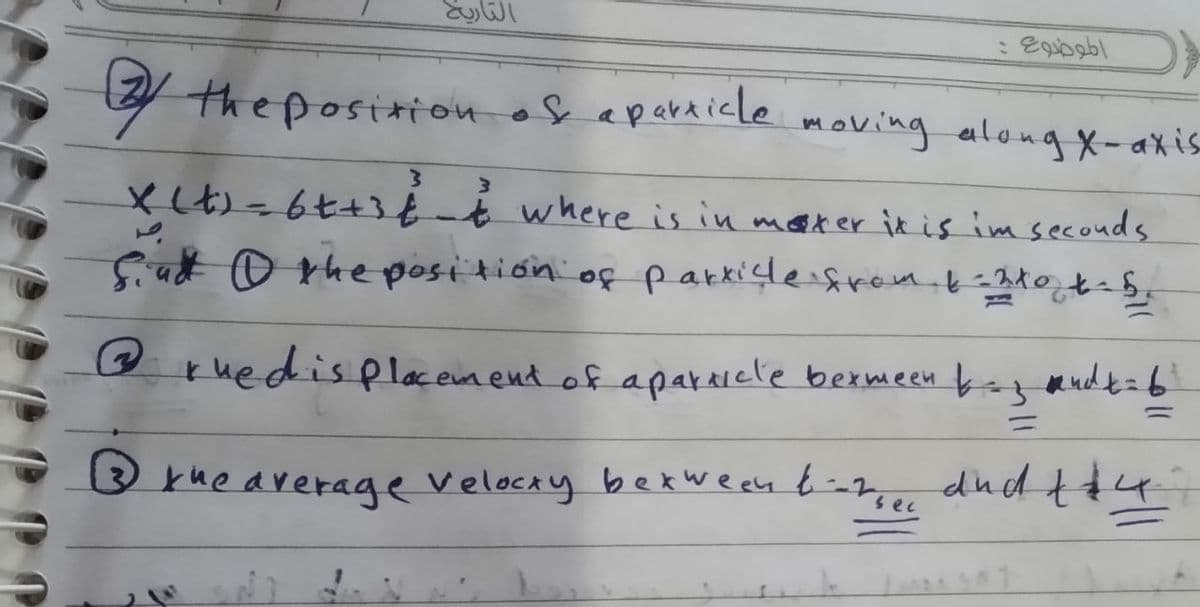 التاريخ
الموضوع :
2/ the position of a particle moving along X-axis
x(t) = 6t+3t³-t³ where is in meter it is im seconds
find ① the position of particle from t=2 to t=5
② the displacement of a particle bermeen t=3 and t=6
③ the average velocty between t=2 sec and t=4